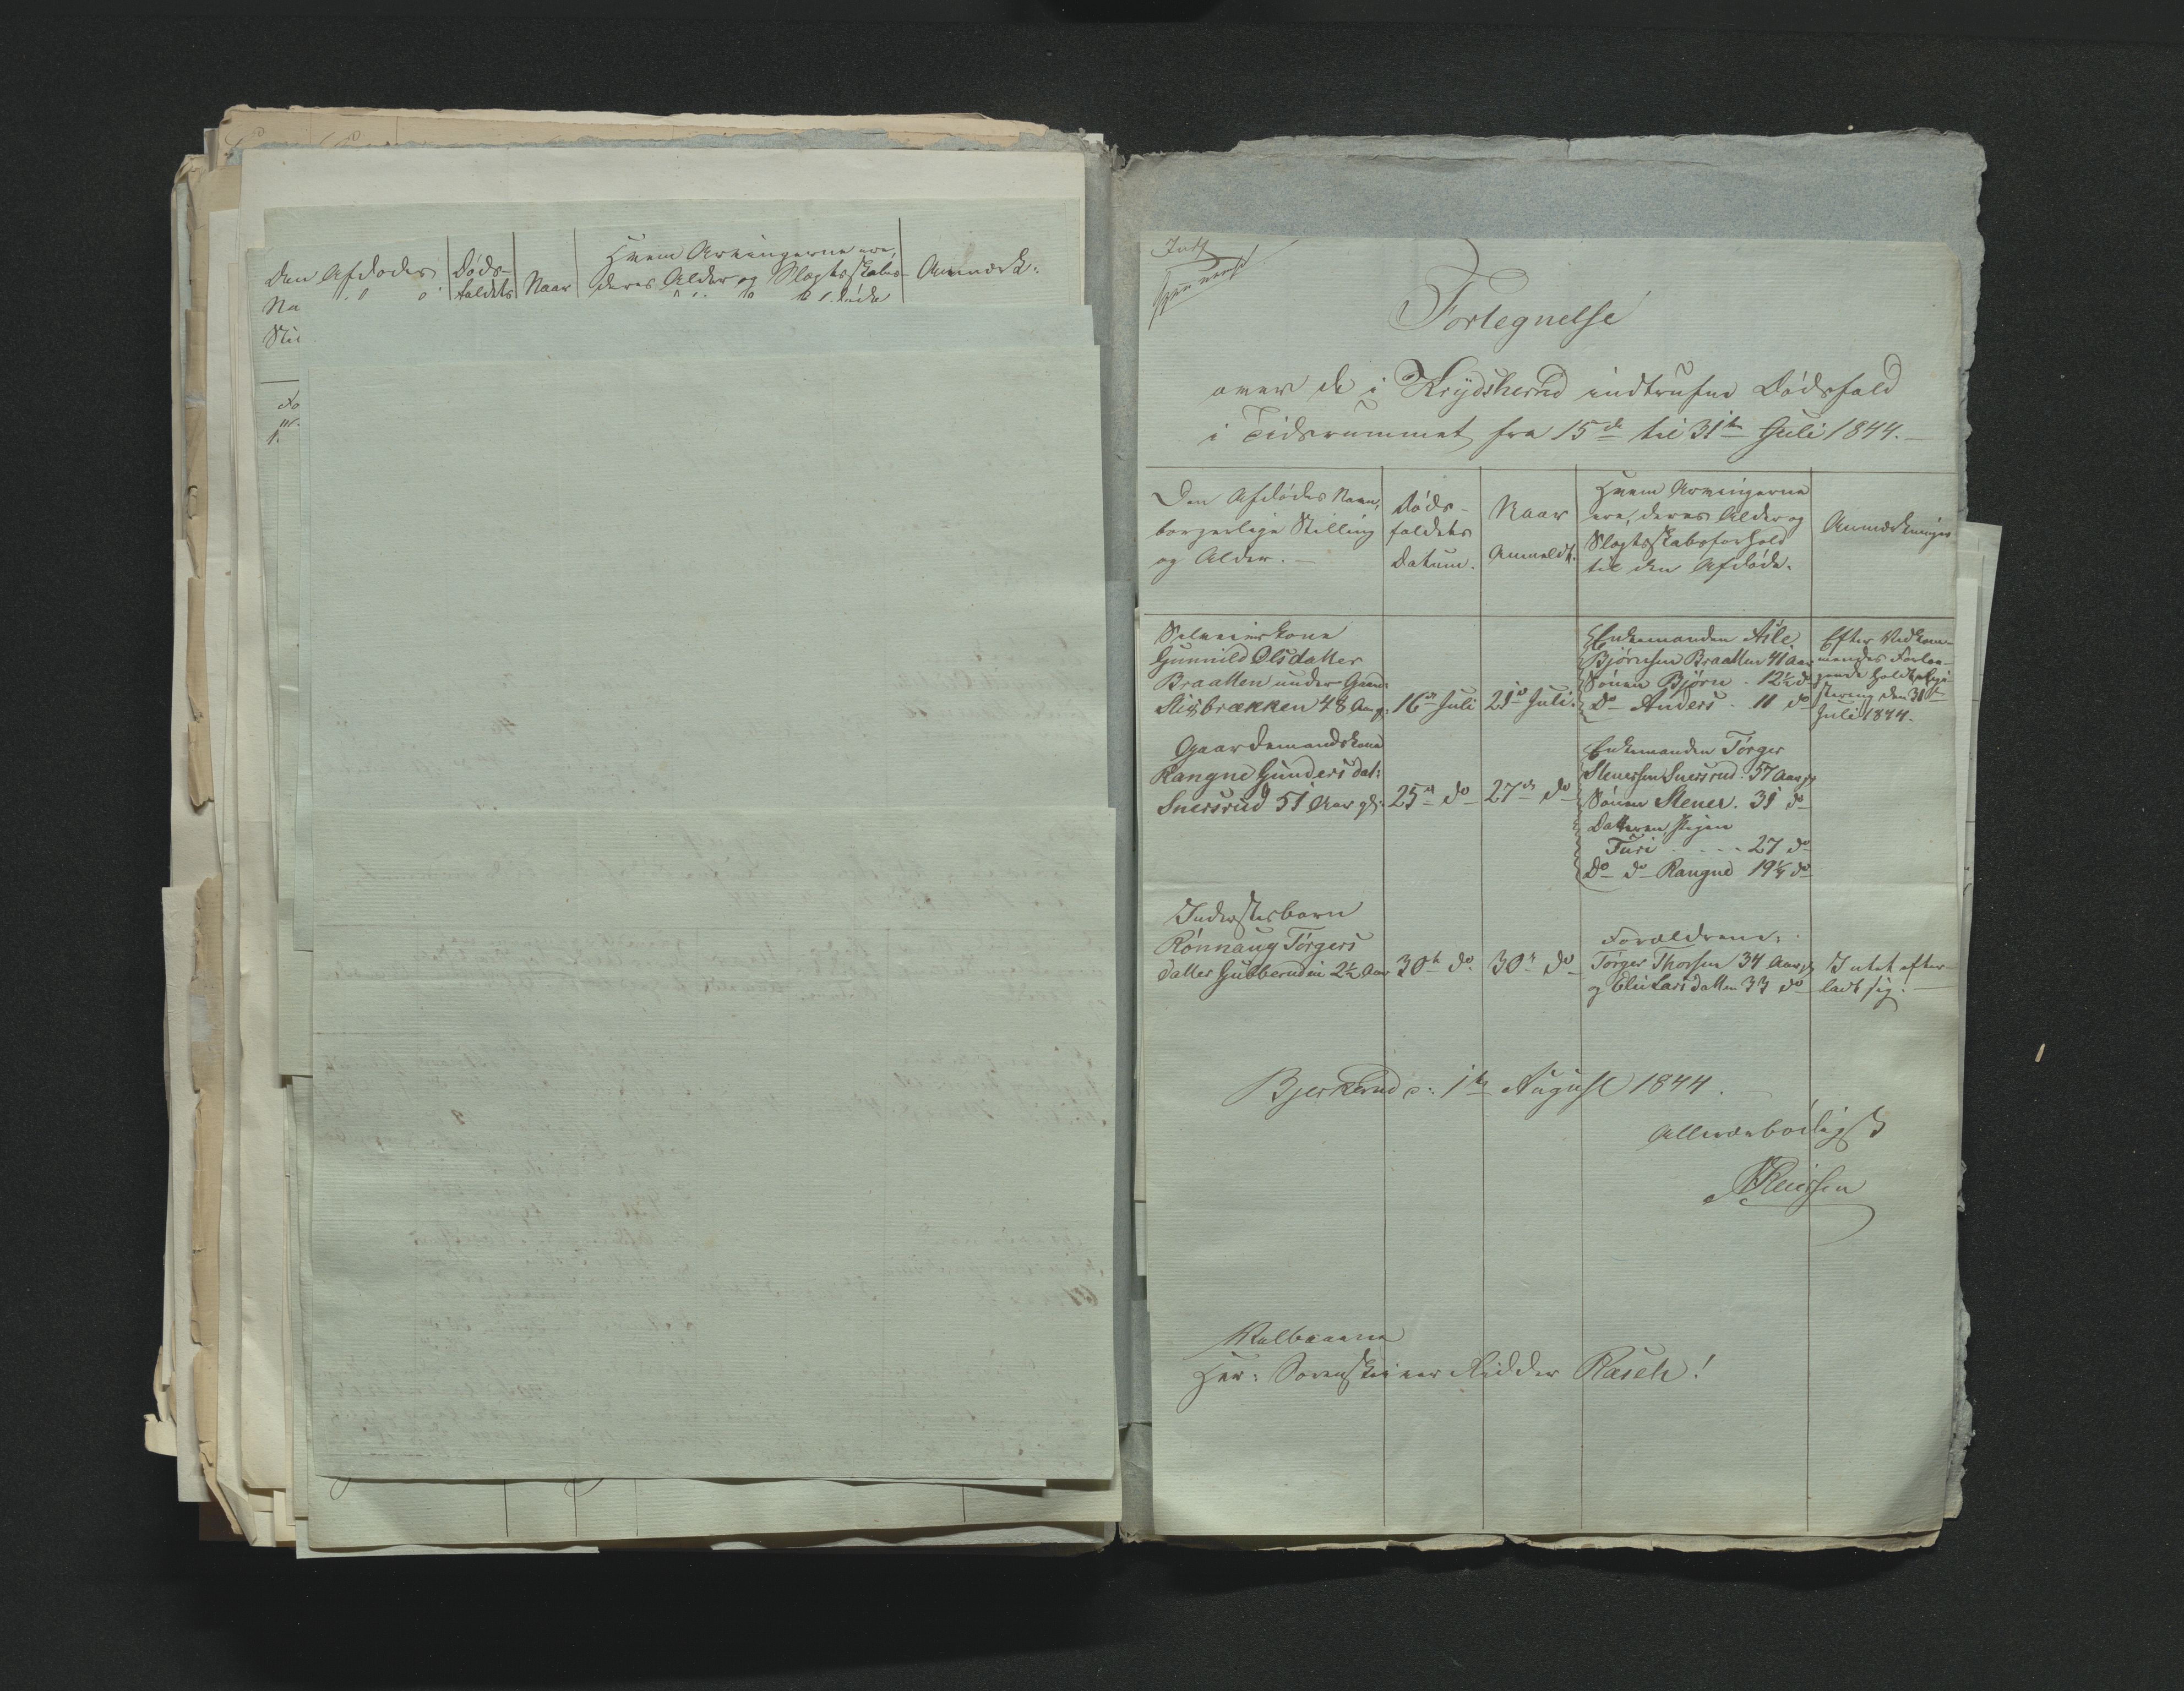 Den Afdødes
Na
Stil
Døds-
faldets
Naar
Hvem Arvingerne ere,
deres Alder og Slægtsskabs-
Anmærk:
Fortegnelse
over de i Krydsherred indtrufne Dødsfald
i Tidsrummet fra 15de til 31te Juli 1844.
Den Afdødes Navn,
borgerlige Stilling
og Alder.
Døds-
faldets
Datum.
Naar
Anmeldt.
Hvem Arvingerne
ere, deres Alder og
Slægtsskabsforhold
til den Afdøde.
Anmærkninger
Selveierkone
Gunnild Olsdatter
Braatten under Gaard:
48 Aar g:
16de Juli
21de Juli.
Enkemanden Asle
Bjørnsen Braatten 41 Aar
Sønnen Bjørn . 12½ do
Do Anders . 11 do
Efter Vedkom-
mendes Forlan-
gende holdt Regi-
stering den 31te
Juli 1844.
Gaardemandskone
Rangne Gunders dat:
Snersrud 51 Aar gl:
25de do
27de do
Enkemanden Tørger
Stenersen Snersrud . 57 Aar gl
Sønnen Stener . 31 do
Datteren Pigen
Turi . . . . 27 do
Do do Rangne 19¼ do
Inderstesbarn
Rønnaug Tørgers
datter Gubberudin 2½ Aar
30te do
30te do
Forældrene:
Tørger Thorsen 34 Aar gl
og Eli Larsdatter 33 do
Intet efter-
ladt sig.
Bjerkerud d: 1te August 1844.
Allerærbødigst
Velbaarne
Herr: Sorenskriver Ridder Rasch!